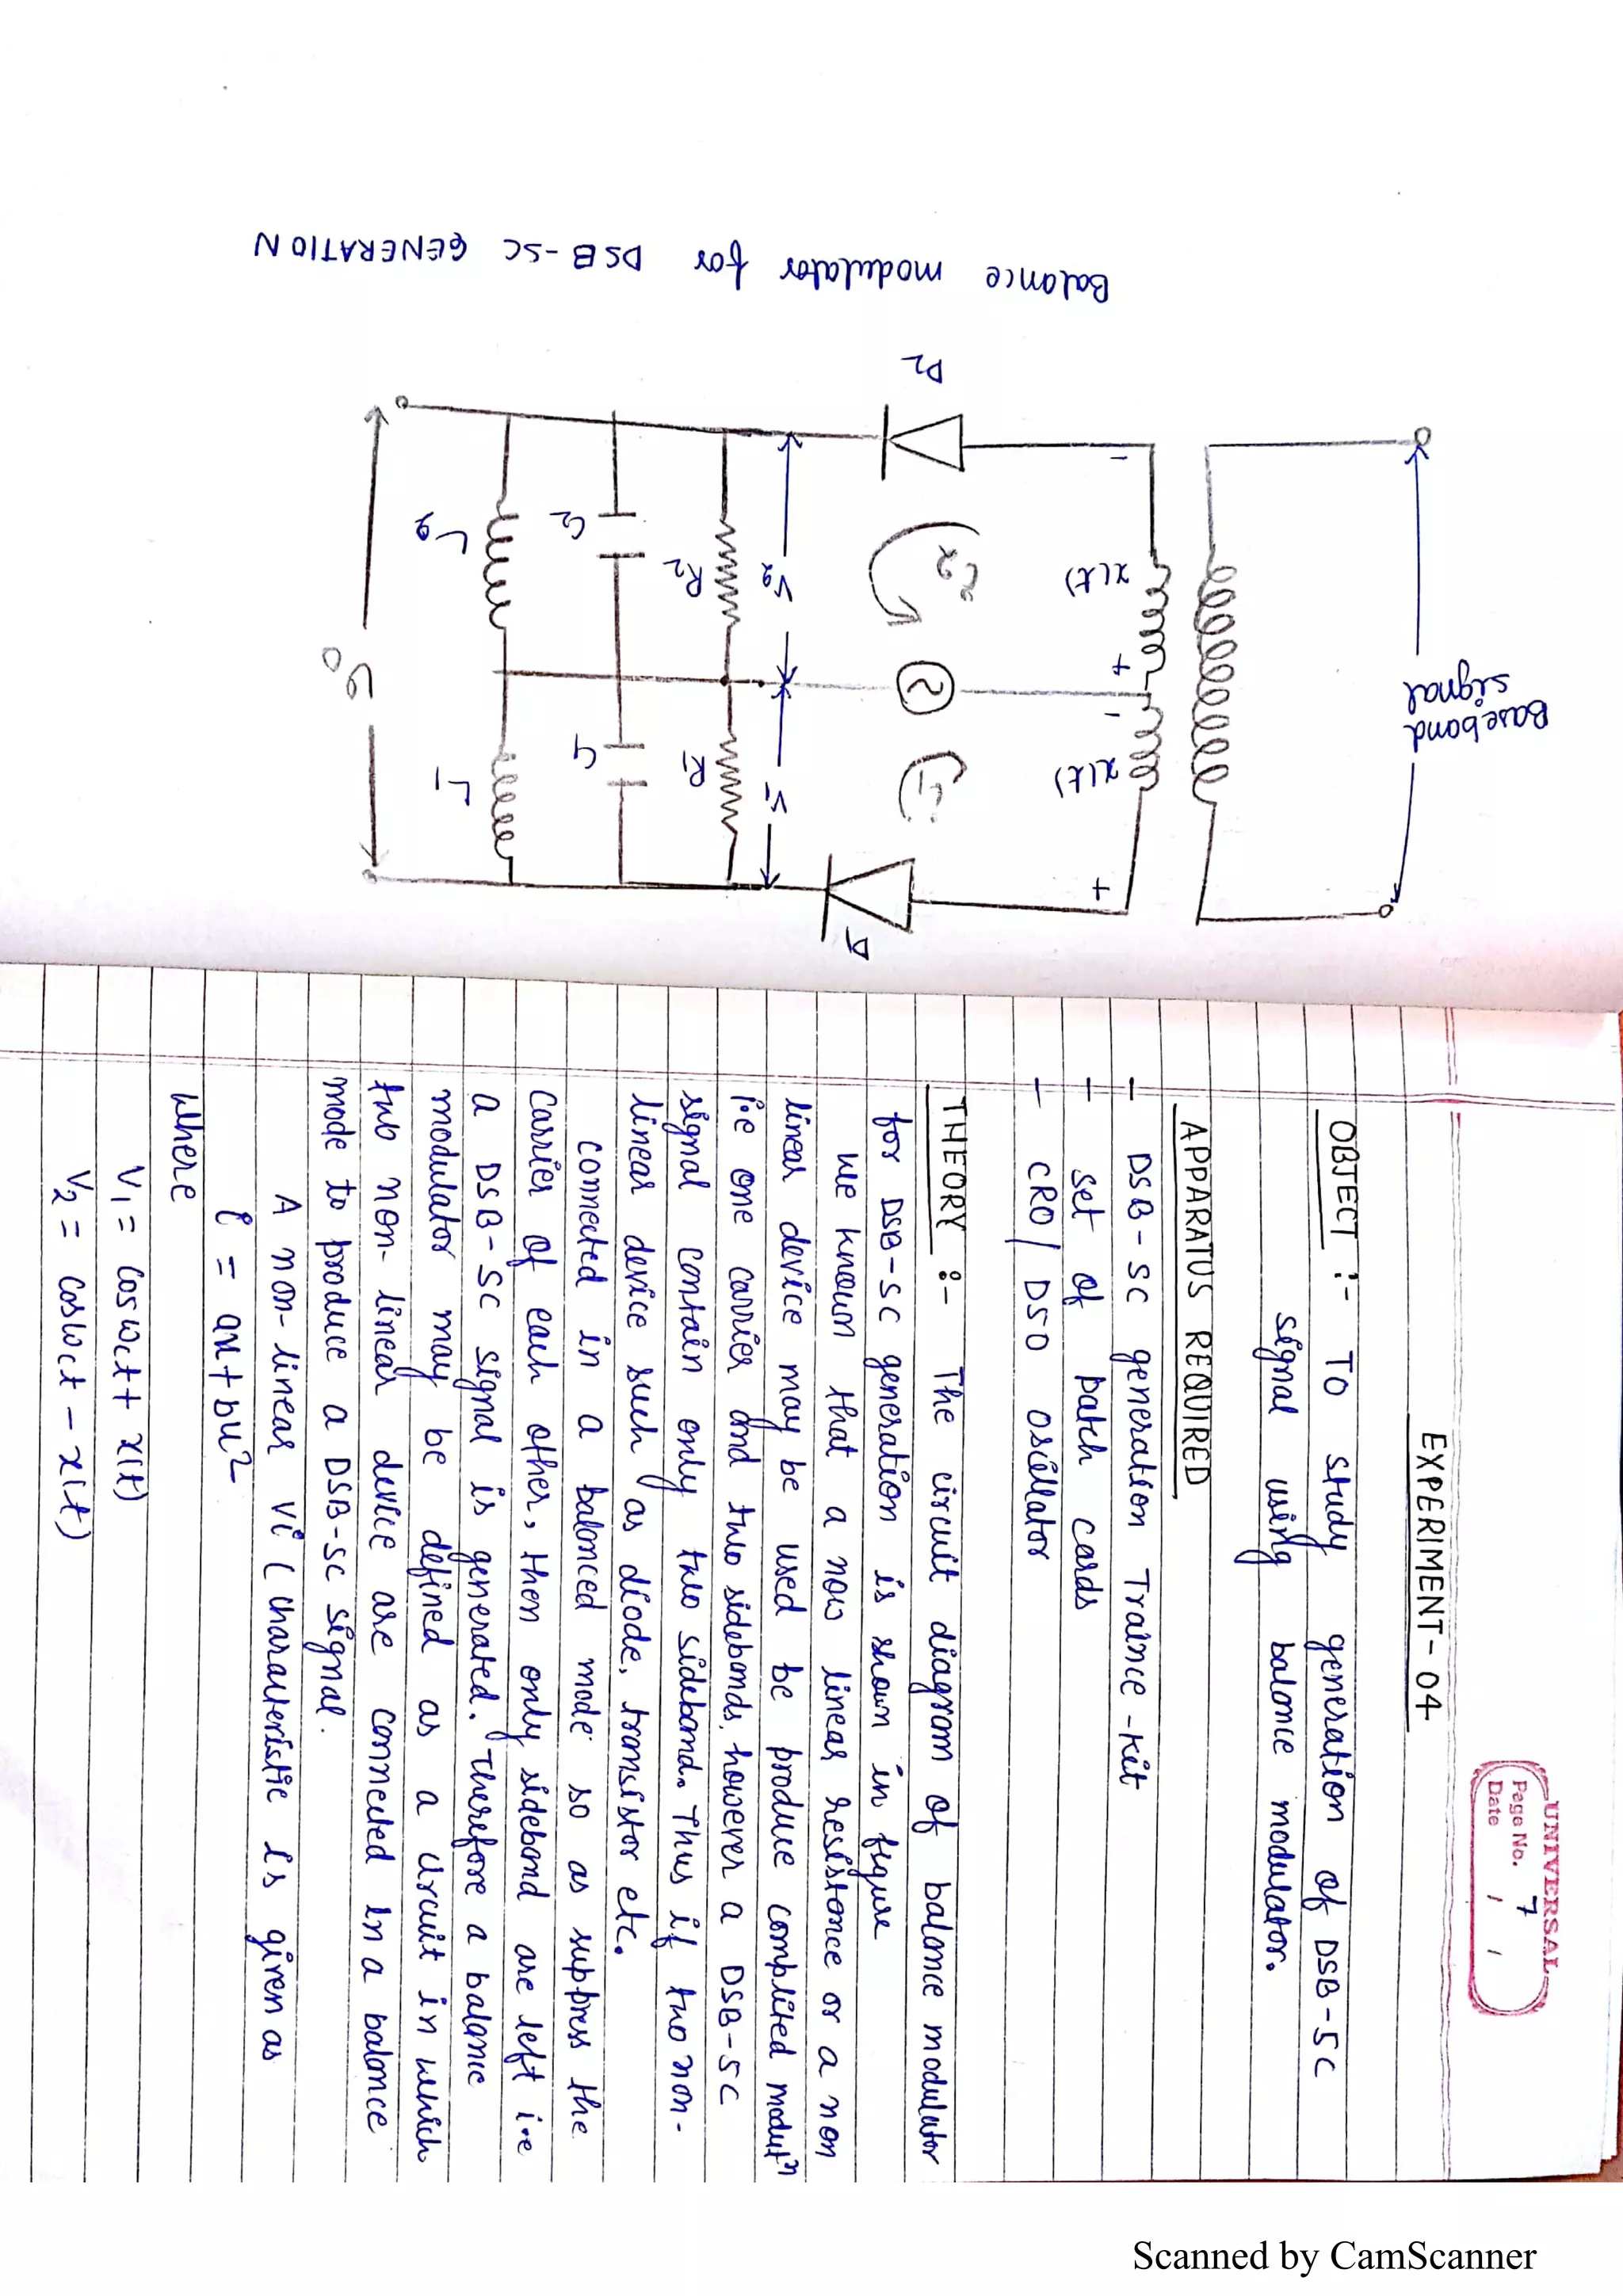 Balance modulator for DSB-SC GENERATION
Baseband
signal
x(t)
x(t)
-
+
-
+
D2
D1
i2
i1
V2
V1
R2
R1
C2
C1
L2
L1
V0
UNIVERSAL
Page No. 7
Date / /
EXPERIMENT-04
OBJECT :- To study generation of DSB-SC
signal using balance modulator.
APPARATUS REQUIRED
- DSB-SC generation Traince-Kit
- set of patch cards
- CRO/DSO oscillator
THEORY :- The circuit diagram of balance modulator
for DSB-SC generation is shown in figure
We known that a now linear resistance or a non
linear device may be used be produce complited modutn
i.e one carrier and two sidebands, however a DSB-SC
signal contain only two sideband. Thus if two non-
linear device such as diode, transistor etc.
connected in a balanced mode so as suppress the
carrier of each other, then only sideband are left i.e
a DSB-SC signal is generated. Therefore a balance
modulator may be defined as a circuit in which
two non-linear device are connected in a balance
mode to produce a DSB-SC signal.
A non-linear Vi (characteristic is given as
i = au+bu2
where
V1 = cosωct + x(t)
V2 = cosωct - x(t)
Scanned by CamScanner